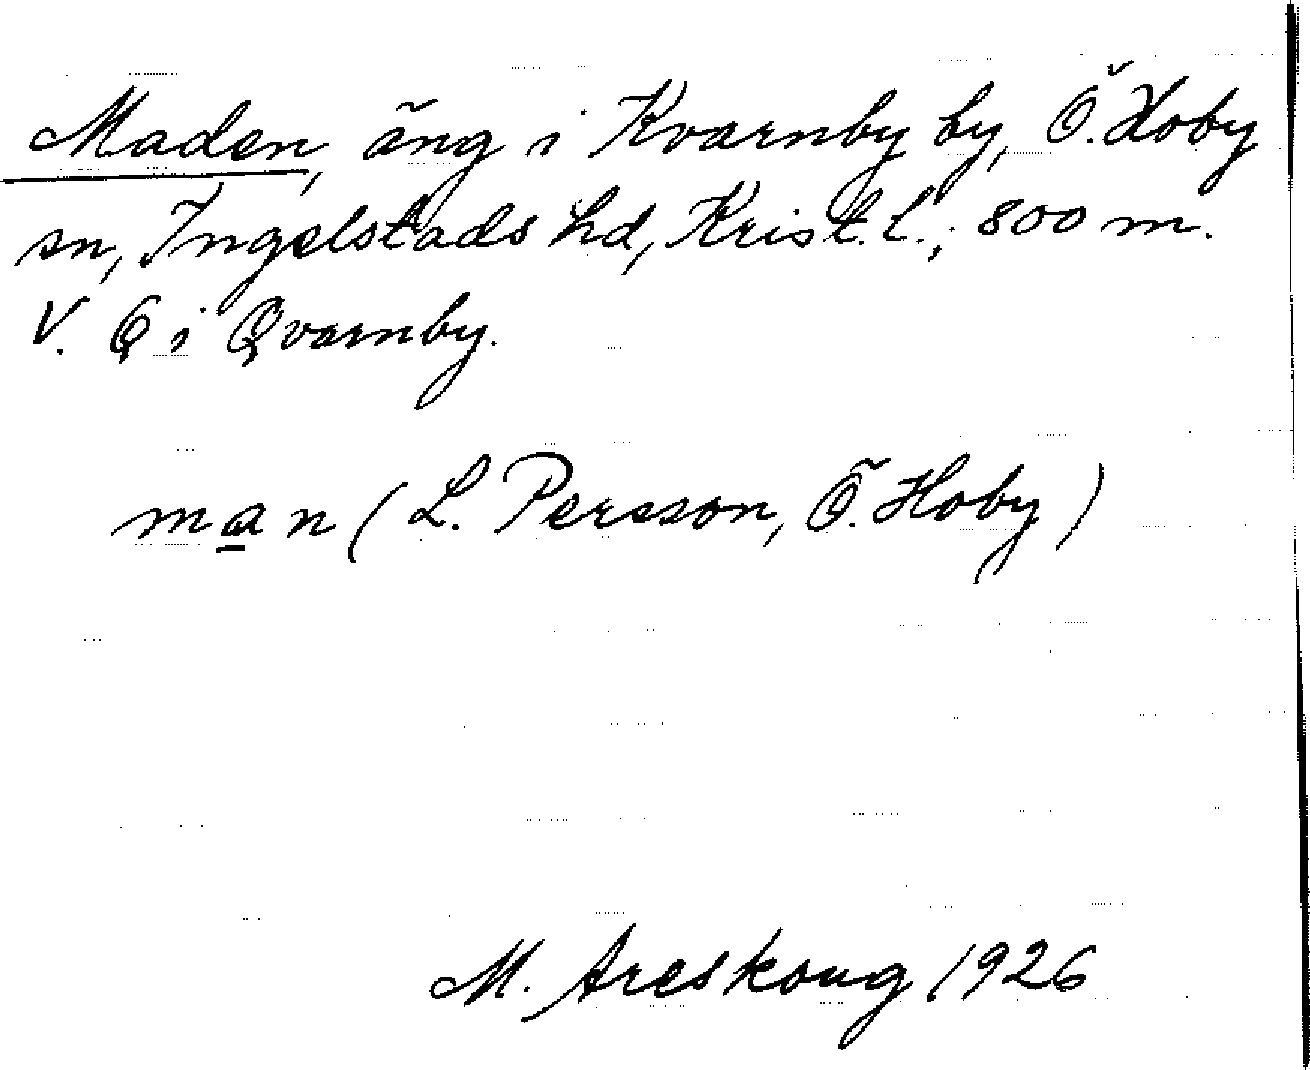 Maden, äng i Kvarnby by, Ö. Hoby
sn, Ingelstads hd, Krist. l.; 800 m.
V. Q i Qvarnby.
man (L. Persson, Ö. Hoby)
M. Areskoug 1926